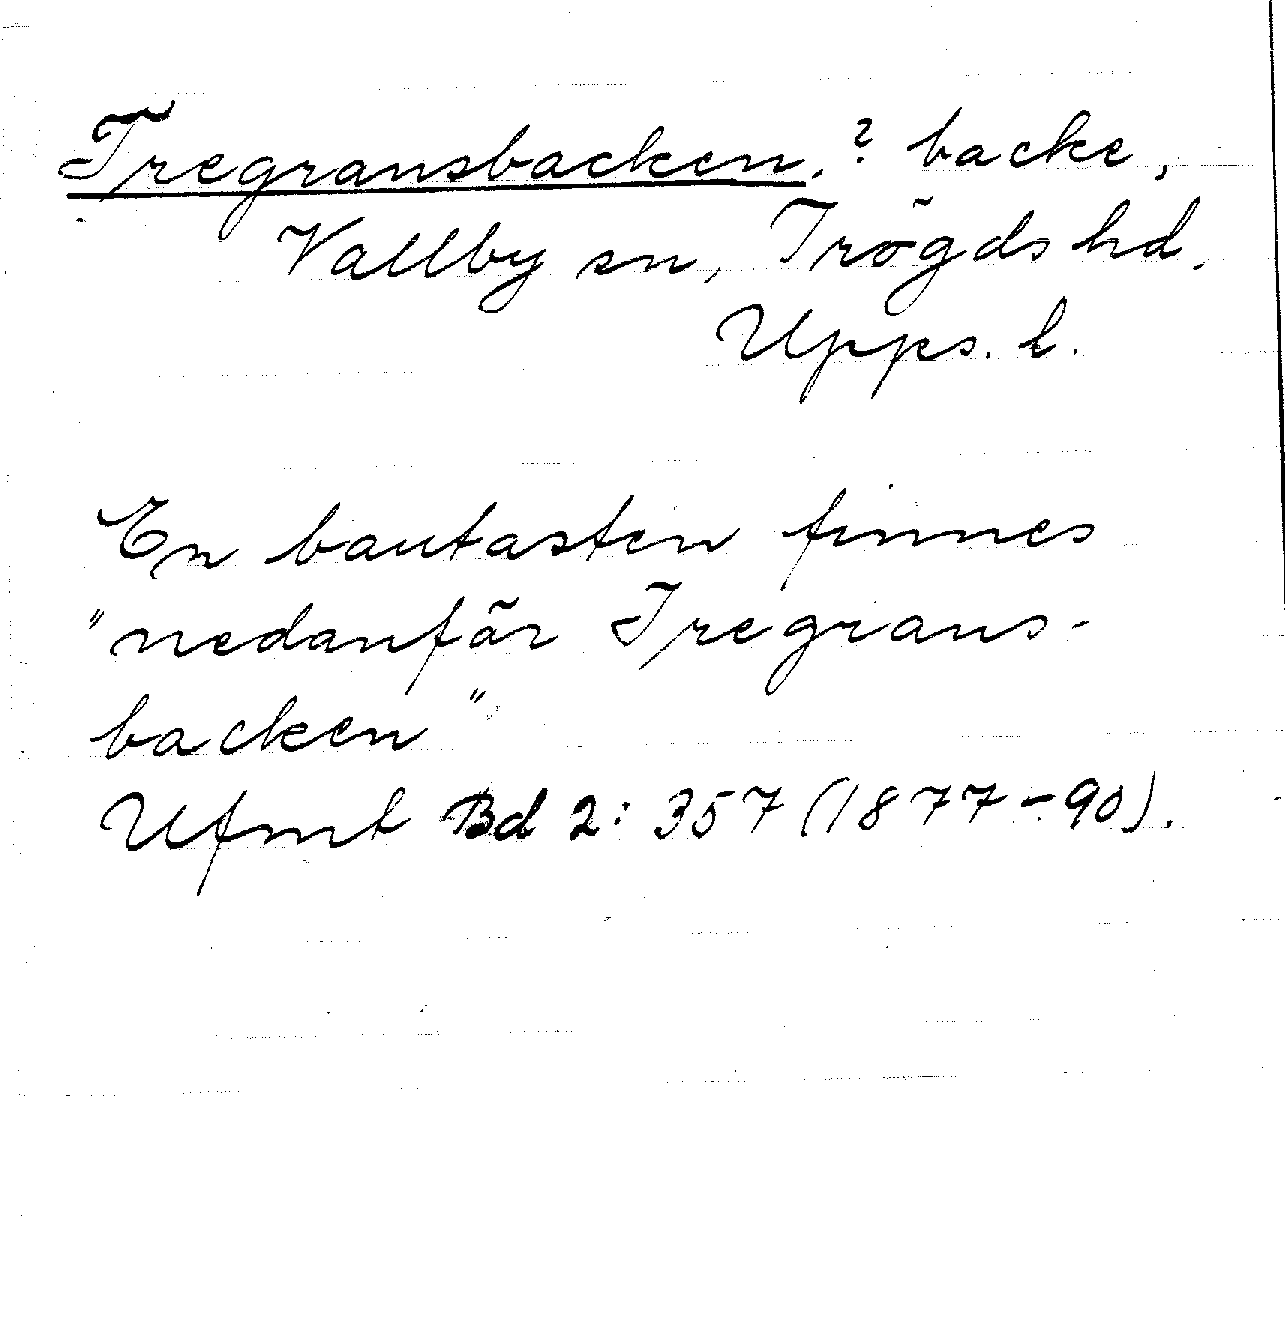 Tregransbacken, ? backe,
Vallby sn, Trögds hd,
Upps. l.
En bautasten finnes
"nedanför Tregrans-
backen"
Ufmt Bd 2: 357 (1877-90).